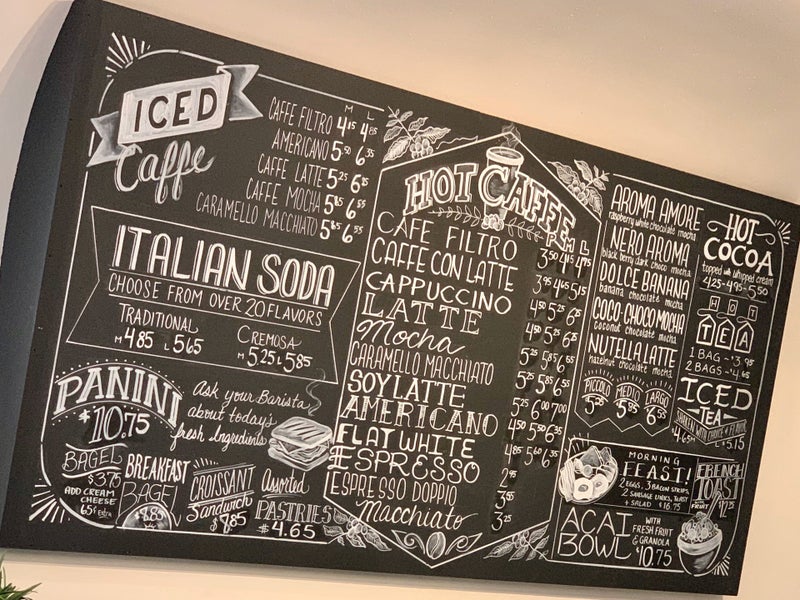 ICED
Caffe
M L
CAFFE FILTRO 4.15 4.85
AMERICANO 5.50 6.35
CAFFE LATTE 5.25 6.25
CAFFE MOCHA 5.85 6.55
CARAMELLO MACCHIATO 5.85 6.55
ITALIAN SODA
CHOOSE FROM OVER 20 FLAVORS
TRADITIONAL
M 4.85 L 5.65
CREMOSA
M 5.25 L 5.85
PANINI
$10.75
Ask your Barista
about today's
fresh Ingredients
BAGEL
$3.75
ADD CREAM
CHEESE
65¢ Extra
BREAKFAST
BAGEL
$8.85
CROISSANT
Sandwich
$8.85
Assorted
PASTRIES
$4.65
HOT CAFFE
P M L
CAFE FILTRO 3.50 4.15 4.95
CAFFE CON LATTE 3.95 4.65 5.15
CAPPUCCINO 4.50 5.25 6.25
LATTE 4.50 5.25 6.25
Mocha 5.25 5.85 6.55
CARAMELLO MACCHIATO 5.25 5.85 6.55
SOY LATTE 5.25 6.00 7.00
AMERICANO 4.50 5.50 6.35
FLAT WHITE 4.85 5.60 6.35
ESPRESSO 2.95
ESPRESSO DOPPIO 3.55
Macchiato 3.25
AROMA AMORE
raspberry white chocolate mocha
NERO AROMA
black berry dark choco mocha
DOLCE BANANA
banana chocolate mocha
COCO-CHOCO MOCHA
coconut chocolate mocha
NUTELLA LATTE
hazelnut chocolate mocha
PICCOLO
5.25
MEDIO
5.85
LARGO
6.55
HOT
COCOA
topped with whipped cream
4.25-4.95-5.50
HOT
TEA
1 BAG - $3.95
2 BAGS - $4.65
ICED
TEA
SHAKEN WITH CHOICE of FLAVOR
M $4.65 L $5.15
MORNING
FEAST!
2 EGGS, 3 BACON STRIPS,
2 SAUSAGE LINKS, TOAST
+ SALAD $16.75
FRENCH
TOAST
FRUIT
$12.25
ACAI
BOWL
WITH
FRESH FRUIT
& GRANOLA
$10.75